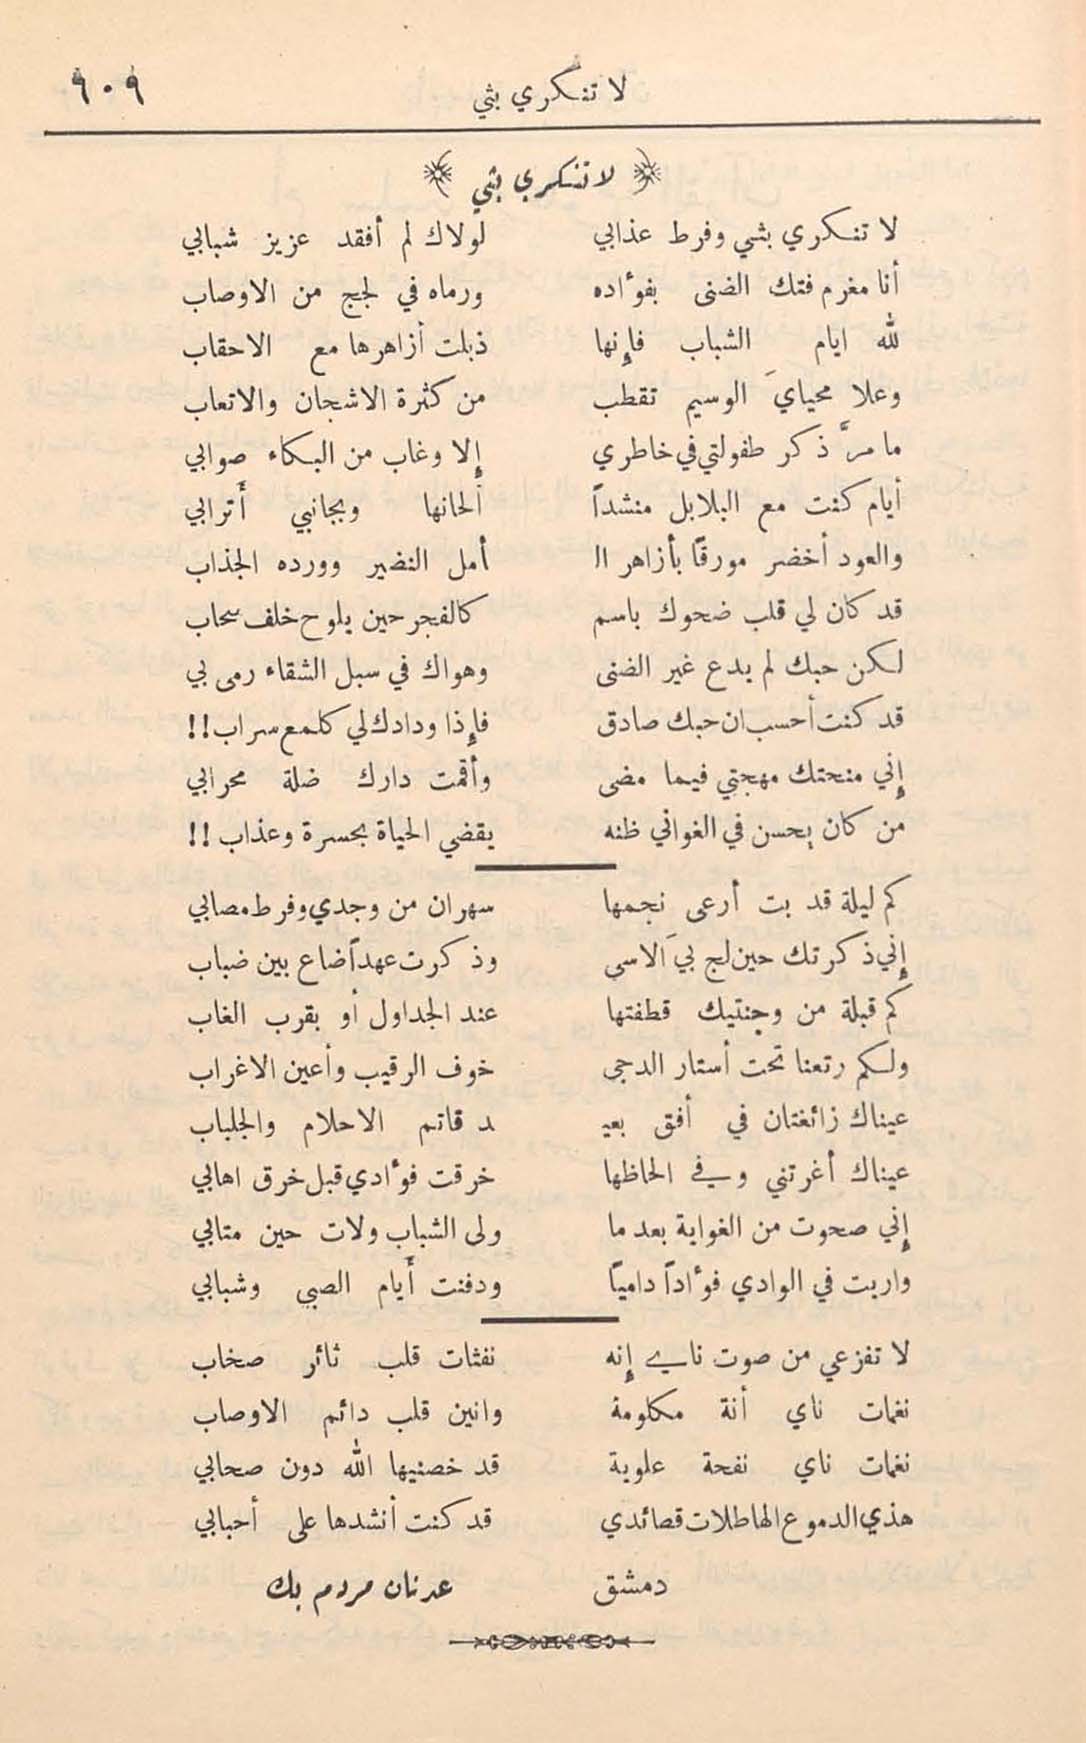 لا تنكري بثي ٩٠٩
لا تنكري بثي
لا تنكري بثي وفرط عذابي لولاك لم أفقد عزيز شبابي
أنا مغرم فتك الضنى بفوٴاده ورماه في لجج من الاوصاب
لله ايام الشباب فإنها ذبلت أزاهرها مع الاحقاب
وعلا محيايَ الوسيم تقطب من كثرة الاشجان والاتعاب
ما مرَّ ذكر طفولتي في خاطري إلا وغاب من البكاء صوابي
أيام كنت مع البلابل منشداً ألحانها وبجانبي أترابي
والعود أخضر مورقاً بأزاهر الـ أمل النضير وورده الجذاب
قد كان لي قلب ضحوك باسم كالفجر حين يلوح خلف سحاب
لكن حبك لم يدع غير الضنى وهواك في سبل الشقاء رمى بي
قد كنت أحسب ان حبك صادق فإذا ودادك لي كلمع سراب !!
إني منحتك مهجتي فيما مضى وأقمت دارك ضلة محرابي
من كان يحسن في الغواني ظنه يقضي الحياة بحسرة وعذاب !!
كم ليلة قد بت أرعى نجمها سهران من وجدي وفرط مصابي
إني ذكرتك حين لج بيَ الاسى وذكرت عهداً ضاع بين ضباب
كم قبلة من وجنتيك قطفتها عند الجداول أو بقرب الغاب
ولكم رتعنا تحت أستار الدجى خوف الرقيب وأعين الاغراب
عيناك زائغتان في أفق بعيـ ـد قاتم الاحلام والجلباب
عيناك أغرتني وفي الحاظها خرقت فوٴادي قبل خرق اهابي
إني صحوت من الغواية بعد ما ولى الشباب ولات حين متابي
واريت في الوادي فوٴاداً دامياً ودفنت أيام الصبي وشبابي
لا تفزعي من صوت نايي إنه نفثات قلب ثائر صخاب
نغمات ناي أنة مكلومة وانين قلب دائم الاوصاب
نغمات ناي نفحة علوية قد خصنيها الله دون صحابي
هذي الدموع الهاطلات قصائدي قد كنت أنشدها على أحبابي
دمشق عدنان مردم بك